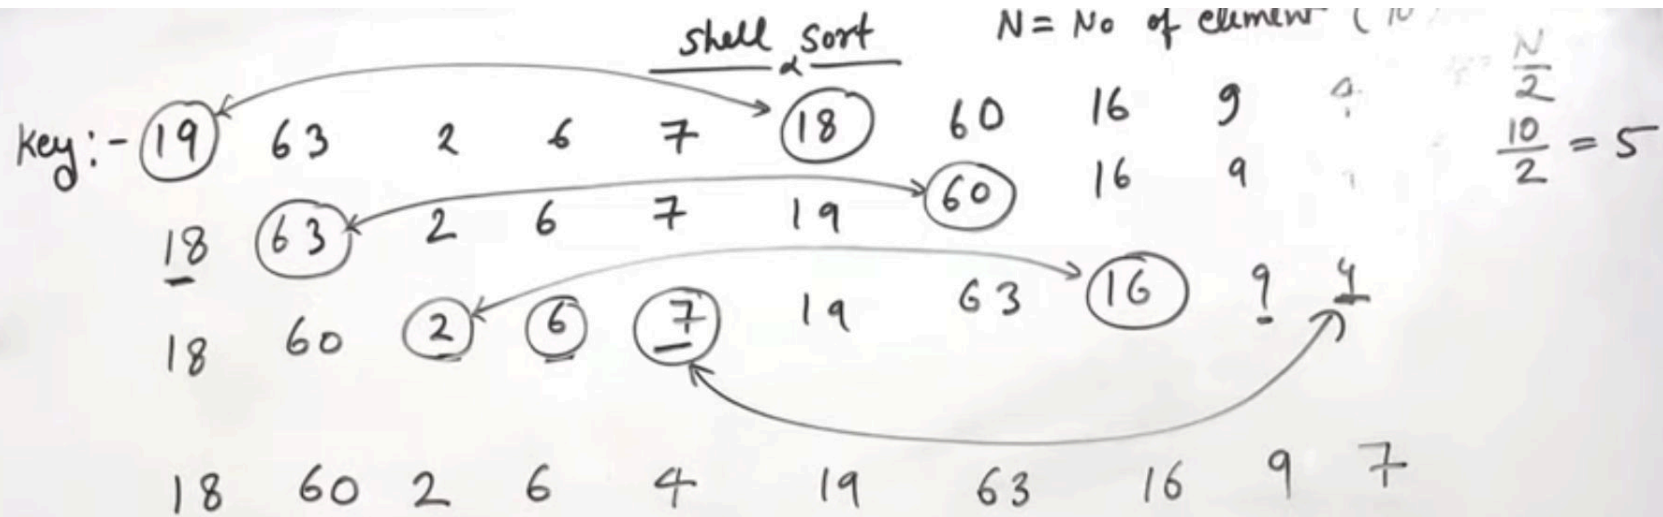 shell sort N = No of element (10
N
2
Key:- 19 63 2 6 7 18 60 16 9
10
2 = 5
18 63 2 6 7 19 60 16 9
18 60 2 6 7 19 63 16 9 4
18 60 2 6 4 19 63 16 9 7